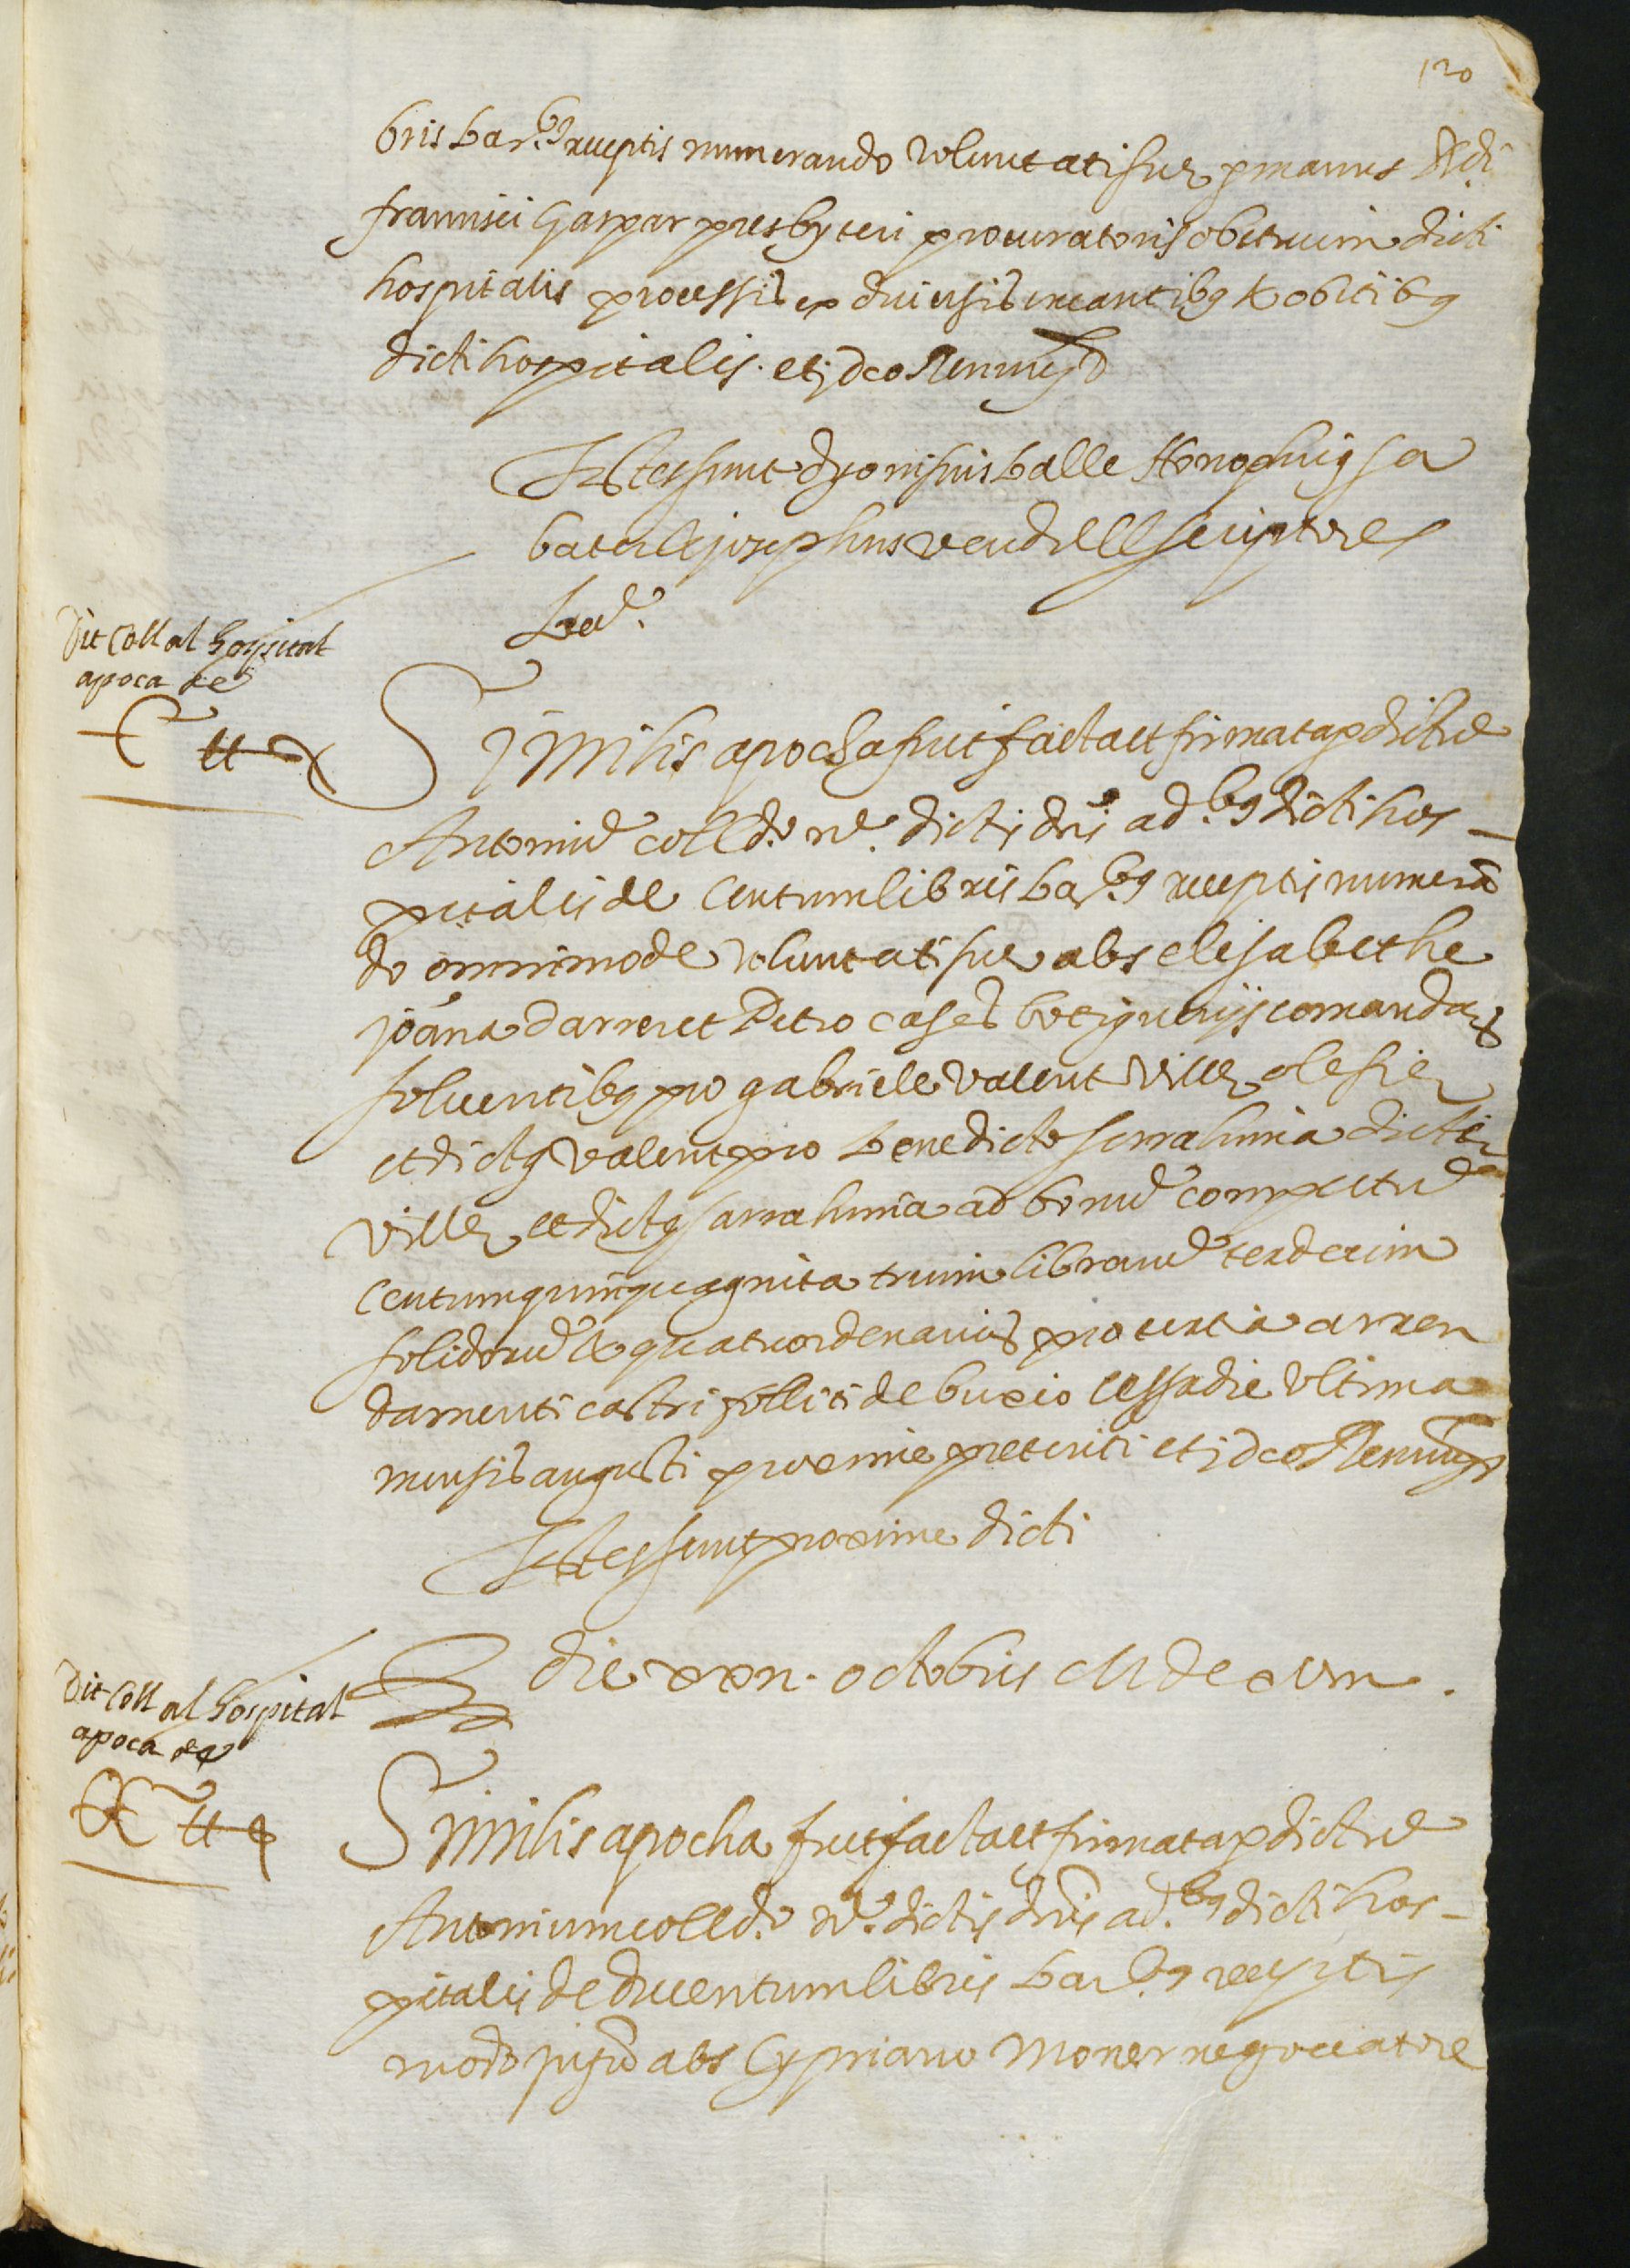 120
bris bar.^bg receptis numerando voluntati sue p manus Rdi
francisci Gaspar presbyteri procuratoris obituum dicti
hospitalis processis ex diuersis incantibg & obitibg
dicti hospitalis. et jdeo Renun
Testes sunt dyonisius balle Honophrig sa
bater et josephus vendrell scriptores
bar̃.
dit Coll al hospital
apoca de
C ℔
Similis apocha fuit facta et firmata p dictũ
Antoniũ coll d.º nẽ. dictis dñis ad.^bg dicti hos-
pitalis de Centum libris bar.^bg receptis numerã
do omnimode voluntati sue abs elisabethe
joãna darrer et Petro cases botiguerijs comandar
soluentibg pro gabriele valent ville olesie
et dictg valent pro benedicto serrahima dicte
ville et dictg sarrahima ad bonũ compotũ
Centum quinquaginta trium librarũ terdecim
solidorũ & quatuor denarius pro tertia arren
damenti castri follit de buxio cessa die vltima
mensis augusti proxime preteriti et jdeo Renun
Testes sunt proxime dicti
die xxii. octobris M dc xviii.
dit Coll al hospital
apoca de
CC ℔
Similis apocha fuit facta et firmata p dictũ
Antonium coll d.º nẽ. dictis dñis ad.^bg dicti hos-
pitalis de ducentum libris bar.^bg receptis
modo p̃ abs Cypriano Moner negociatore